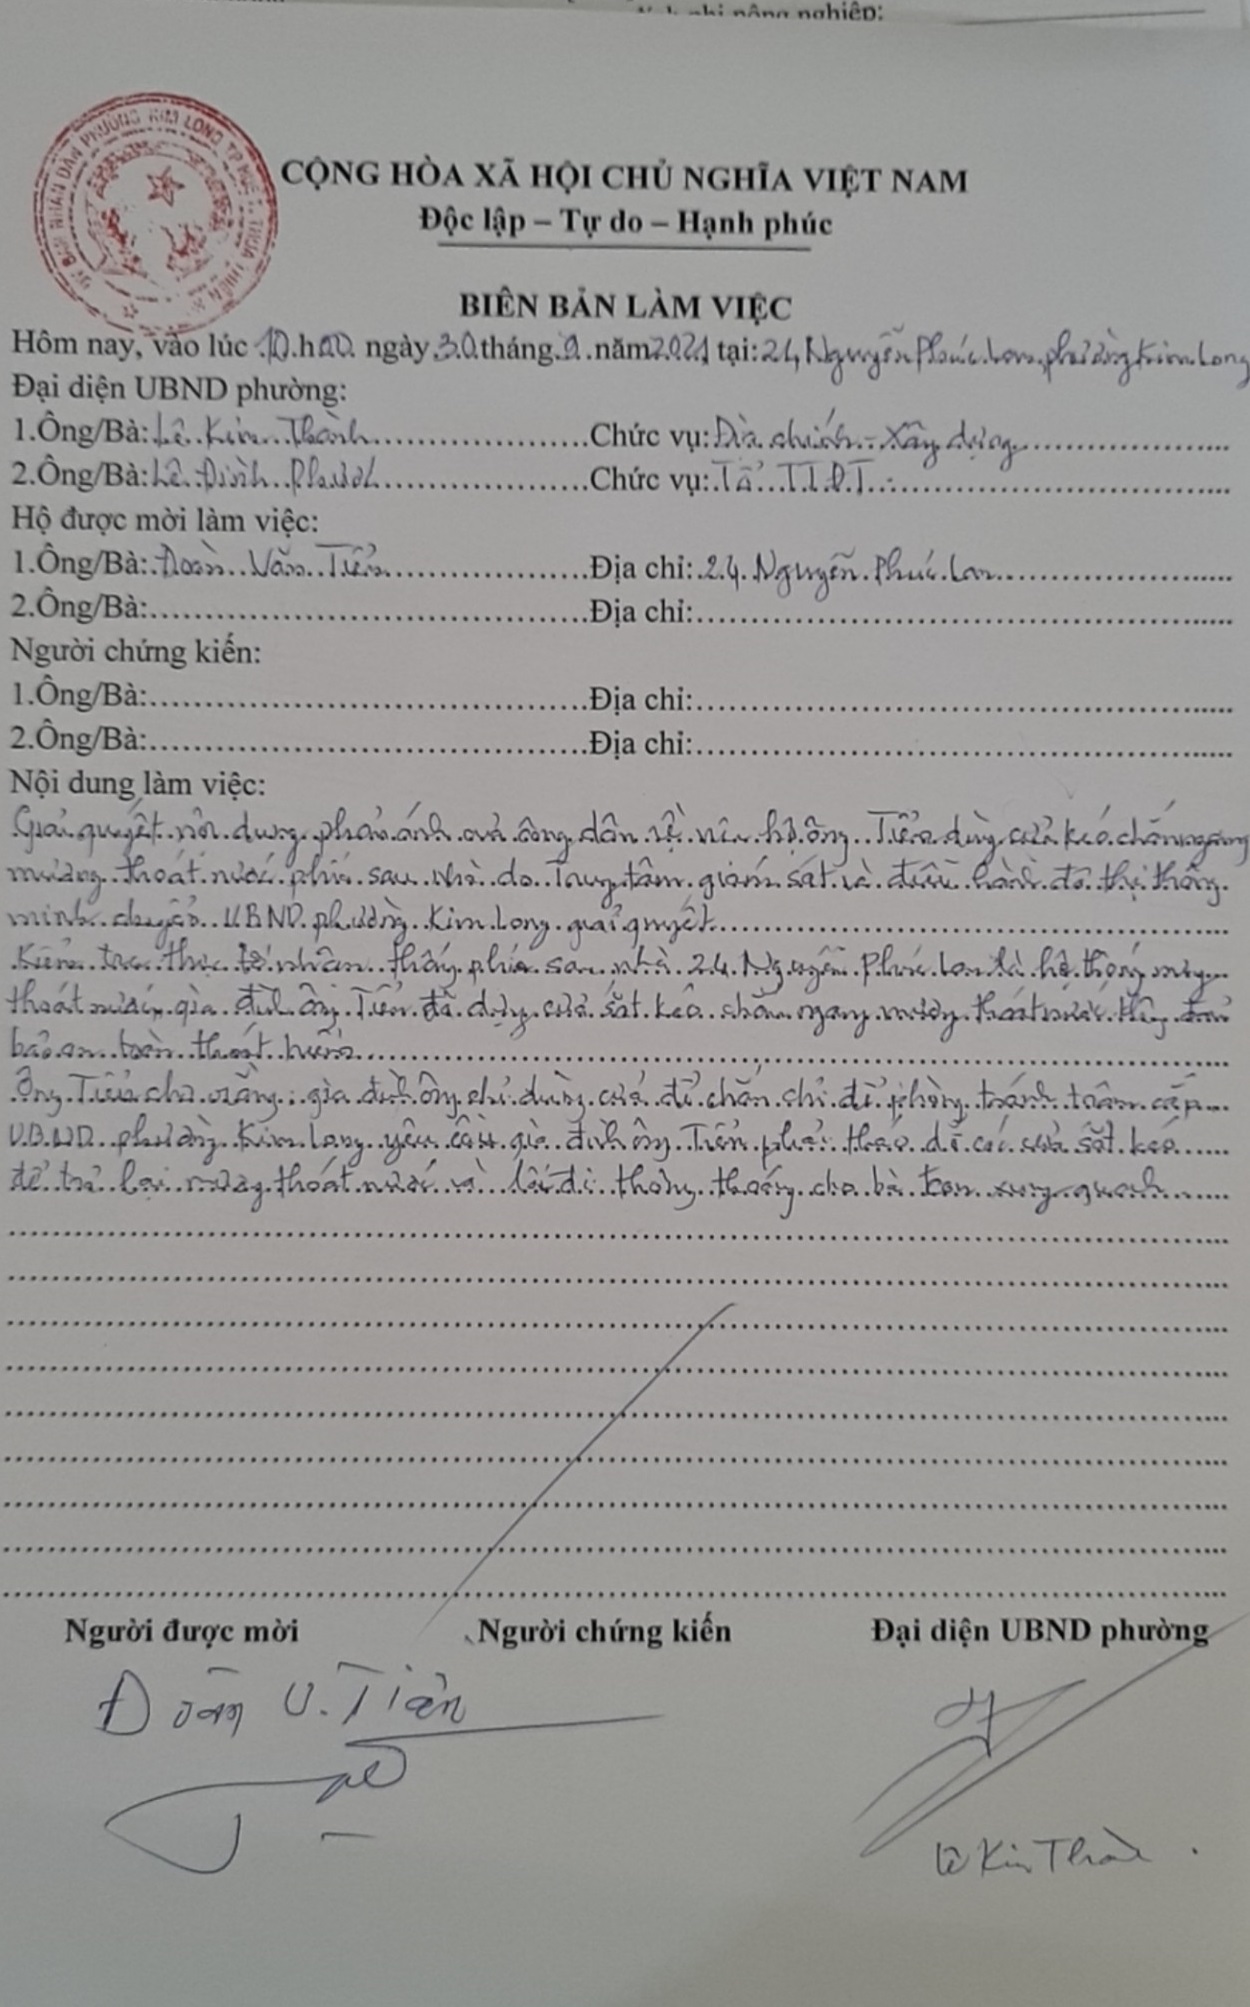 nông nghiệp:
ỦY BAN NHÂN DÂN PHƯỜNG KIM LONG TP HUẾ T. THỪA THIÊN
CỘNG HÒA XÃ HỘI CHỦ NGHĨA VIỆT NAM
Độc lập – Tự do – Hạnh phúc
BIÊN BẢN LÀM VIỆC
Hôm nay, vào lúc 10.h00 ngày 30 tháng 9 năm 2021 tại: 24 Nguyễn Phúc Lan, phường Kim Long
Đại diện UBND phường:
1.Ông/Bà: Lê Kim Thành Chức vụ: Địa chính - Xây dựng
2.Ông/Bà: Lê Đình Chức vụ: Tổ
Hộ được mời làm việc:
1.Ông/Bà: Đoàn Văn Tiển Địa chỉ: 24 Nguyễn Phúc Lan
2.Ông/Bà: Địa chỉ:
Người chứng kiến:
1.Ông/Bà: Địa chỉ:
2.Ông/Bà: Địa chỉ:
Nội dung làm việc:
Giải quyết nội dung phản ánh của công dân về việc hộ ông Tiển dùng cửa kéo chắn ngang
mương thoát nước phía sau nhà do Trung tâm giám sát và điều hành đô thị thông
minh chuyển UBND phường Kim Long giải quyết
Kiểm tra thực tế nhận thấy phía sau nhà 24 Nguyễn Phúc Lan là hệ thống mương
thoát nước, gia đình ông Tiển đã dựng cửa sắt kéo chắn ngang mương thoát nước
bảo an toàn thoát hiểm
Ông Tiển cho rằng: gia đình ông chỉ dùng cửa để chắn chỉ để phòng tránh trộm cắp
UBND phường Kim Long yêu cầu gia đình ông Tiển phải tháo dỡ cái cửa sắt kéo
để trả lại mương thoát nước và lối đi thông thoáng cho bà con xung quanh
Người được mời Người chứng kiến Đại diện UBND phường
Đoàn V. Tiển
Lê Kim Thành